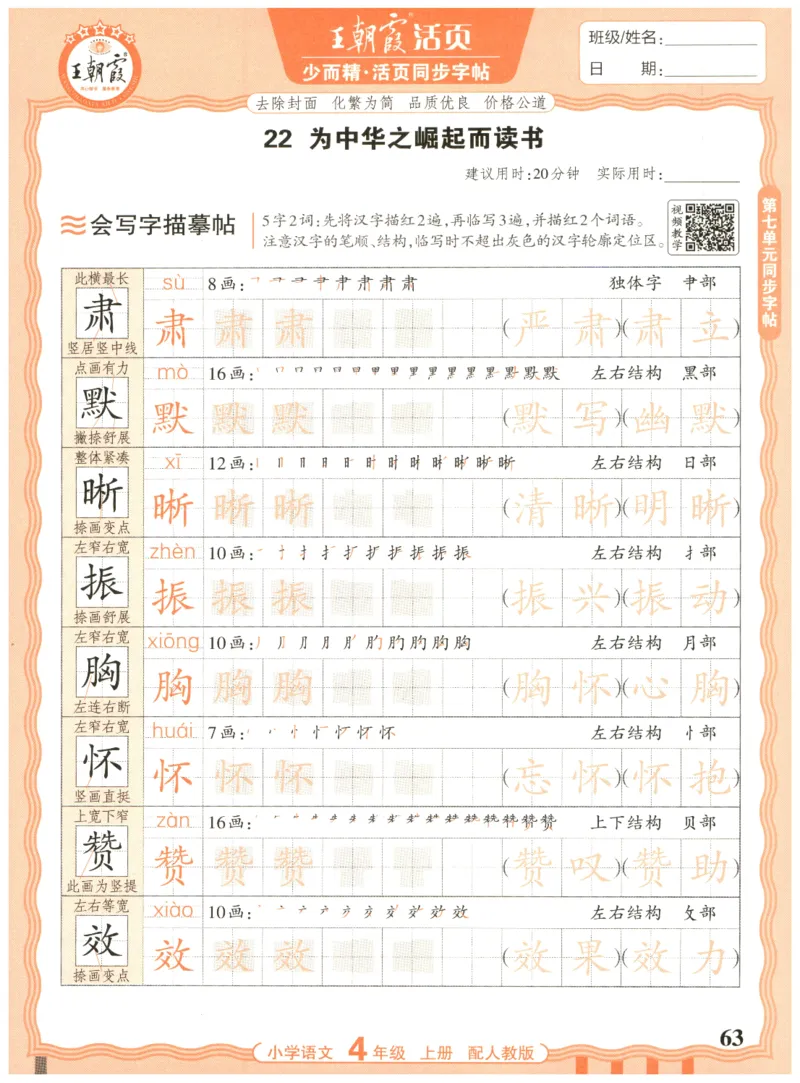 王朝霞
王朝霞®活页
少而精·活页同步字帖
班级/姓名:
日 期:
去除封面 化繁为简 品质优良 价格公道
22 为中华之崛起而读书
建议用时:20分钟 实际用时:
会写字描摹帖
5字2词:先将汉字描红2遍,再临写3遍,并描红2个词语。
注意汉字的笔顺、结构,临写时不超出灰色的汉字轮廓定位区。
视频教学
第七单元同步字帖
此横最长
肃
竖居竖中线
sù 8画: 独体字 肀部
肃 肃 肃 (严 肃)(肃 立)
点画有力
默
撇捺舒展
mò 16画: 左右结构 黑部
默 默 默 (默 写)(幽 默)
整体紧凑
晰
捺画变点
xī 12画: 左右结构 日部
晰 晰 晰 (清 晰)(明 晰)
左窄右宽
振
捺画舒展
zhèn 10画: 左右结构 扌部
振 振 振 (振 兴)(振 动)
左窄右宽
胸
左连右断
xiōng 10画: 左右结构 月部
胸 胸 胸 (胸 怀)(心 胸)
左窄右宽
怀
竖画直挺
huái 7画: 左右结构 忄部
怀 怀 怀 (忘 怀)(怀 抱)
上宽下窄
赞
此画为竖提
zàn 16画: 上下结构 贝部
赞 赞 赞 (赞 叹)(赞 助)
左右等宽
效
捺画变点
xiào 10画: 左右结构 攵部
效 效 效 (效 果)(效 力)
小学语文 4年级 上册 配人教版
63